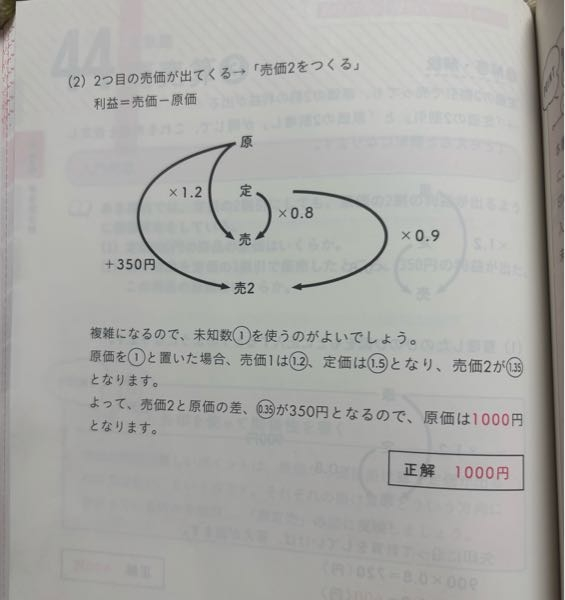 (2) 2つ目の売価が出てくる→「売価2をつくる」
利益=売価-原価
原
×1.2
定
×0.8
売
×0.9
+350円
売2
複雑になるので、未知数①を使うのがよいでしょう。
原価を①と置いた場合、売価1は(1.2)、定価は(1.5)となり、売価2が(1.35)
となります。
よって、売価2と原価の差、(0.35)が350円となるので、原価は1000円
となります。
正解 1000円